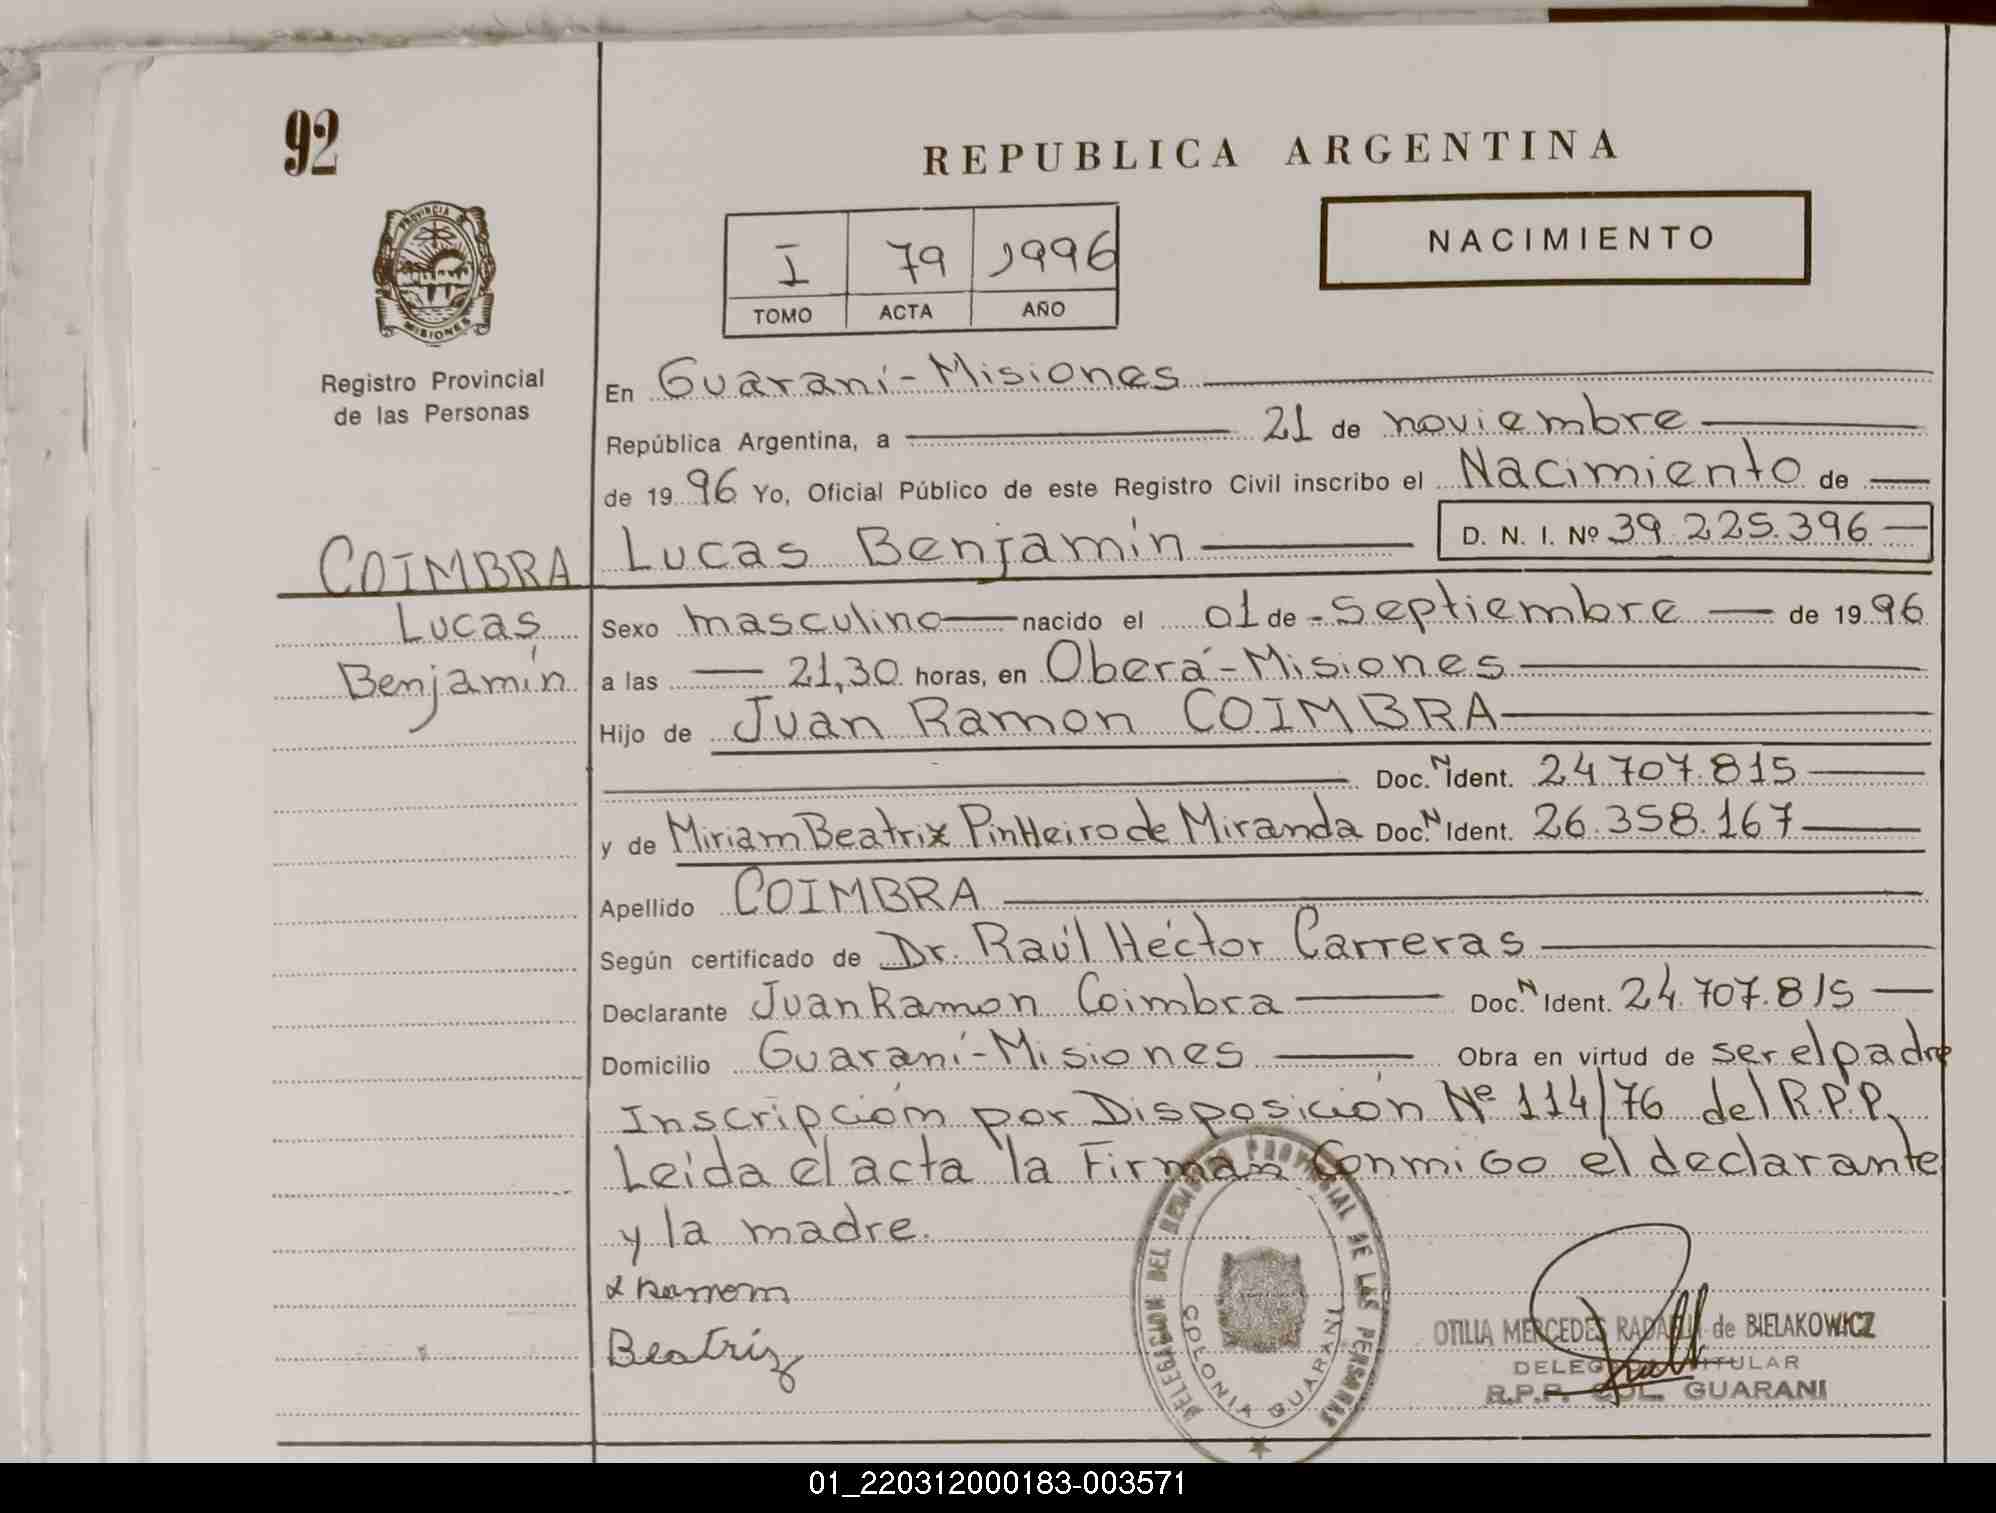 92
REPUBLICA ARGENTINA
PROVINCIA D
MISIONES
I 79 1996
TOMO ACTA AÑO
NACIMIENTO
Registro Provincial
de las Personas
En Guaraní-Misiones
República Argentina, a 21 de noviembre
de 1996 Yo, Oficial Público de este Registro Civil inscribo el Nacimiento de
COIMBRA Lucas Benjamín D. N. I. Nº 39.225.396
Lucas
Benjamín
Sexo masculino nacido el 01 de - septiembre de 1996
a las 21,30 horas, en Oberá-Misiones
Hijo de Juan Ramon COIMBRA
Doc. N Ident. 24.707.815
y de Miriam Beatrix PinHeiro de Miranda Doc. N Ident. 26.358.167
Apellido COIMBRA
Según certificado de Dr. Raúl Héctor Carreras
Declarante Juan Ramon Coimbra Doc. N Ident. 24.707.815
Domicilio Guaraní-Misiones Obra en virtud de ser el padre
Inscripción por Disposición Nº 114/76 del R.P.P.
Leída el acta la Firman Conmigo el declarante
y la madre.
Ramom
Beatriz
DELEGACION DEL REGISTRO PROVINCIAL DE LAS PERSONAS
COLONIA GUARANI
OTILIA MERCEDES de BIELAKOWICZ
TITULAR
R.P.P. COL. GUARANI
01_220312000183-003571